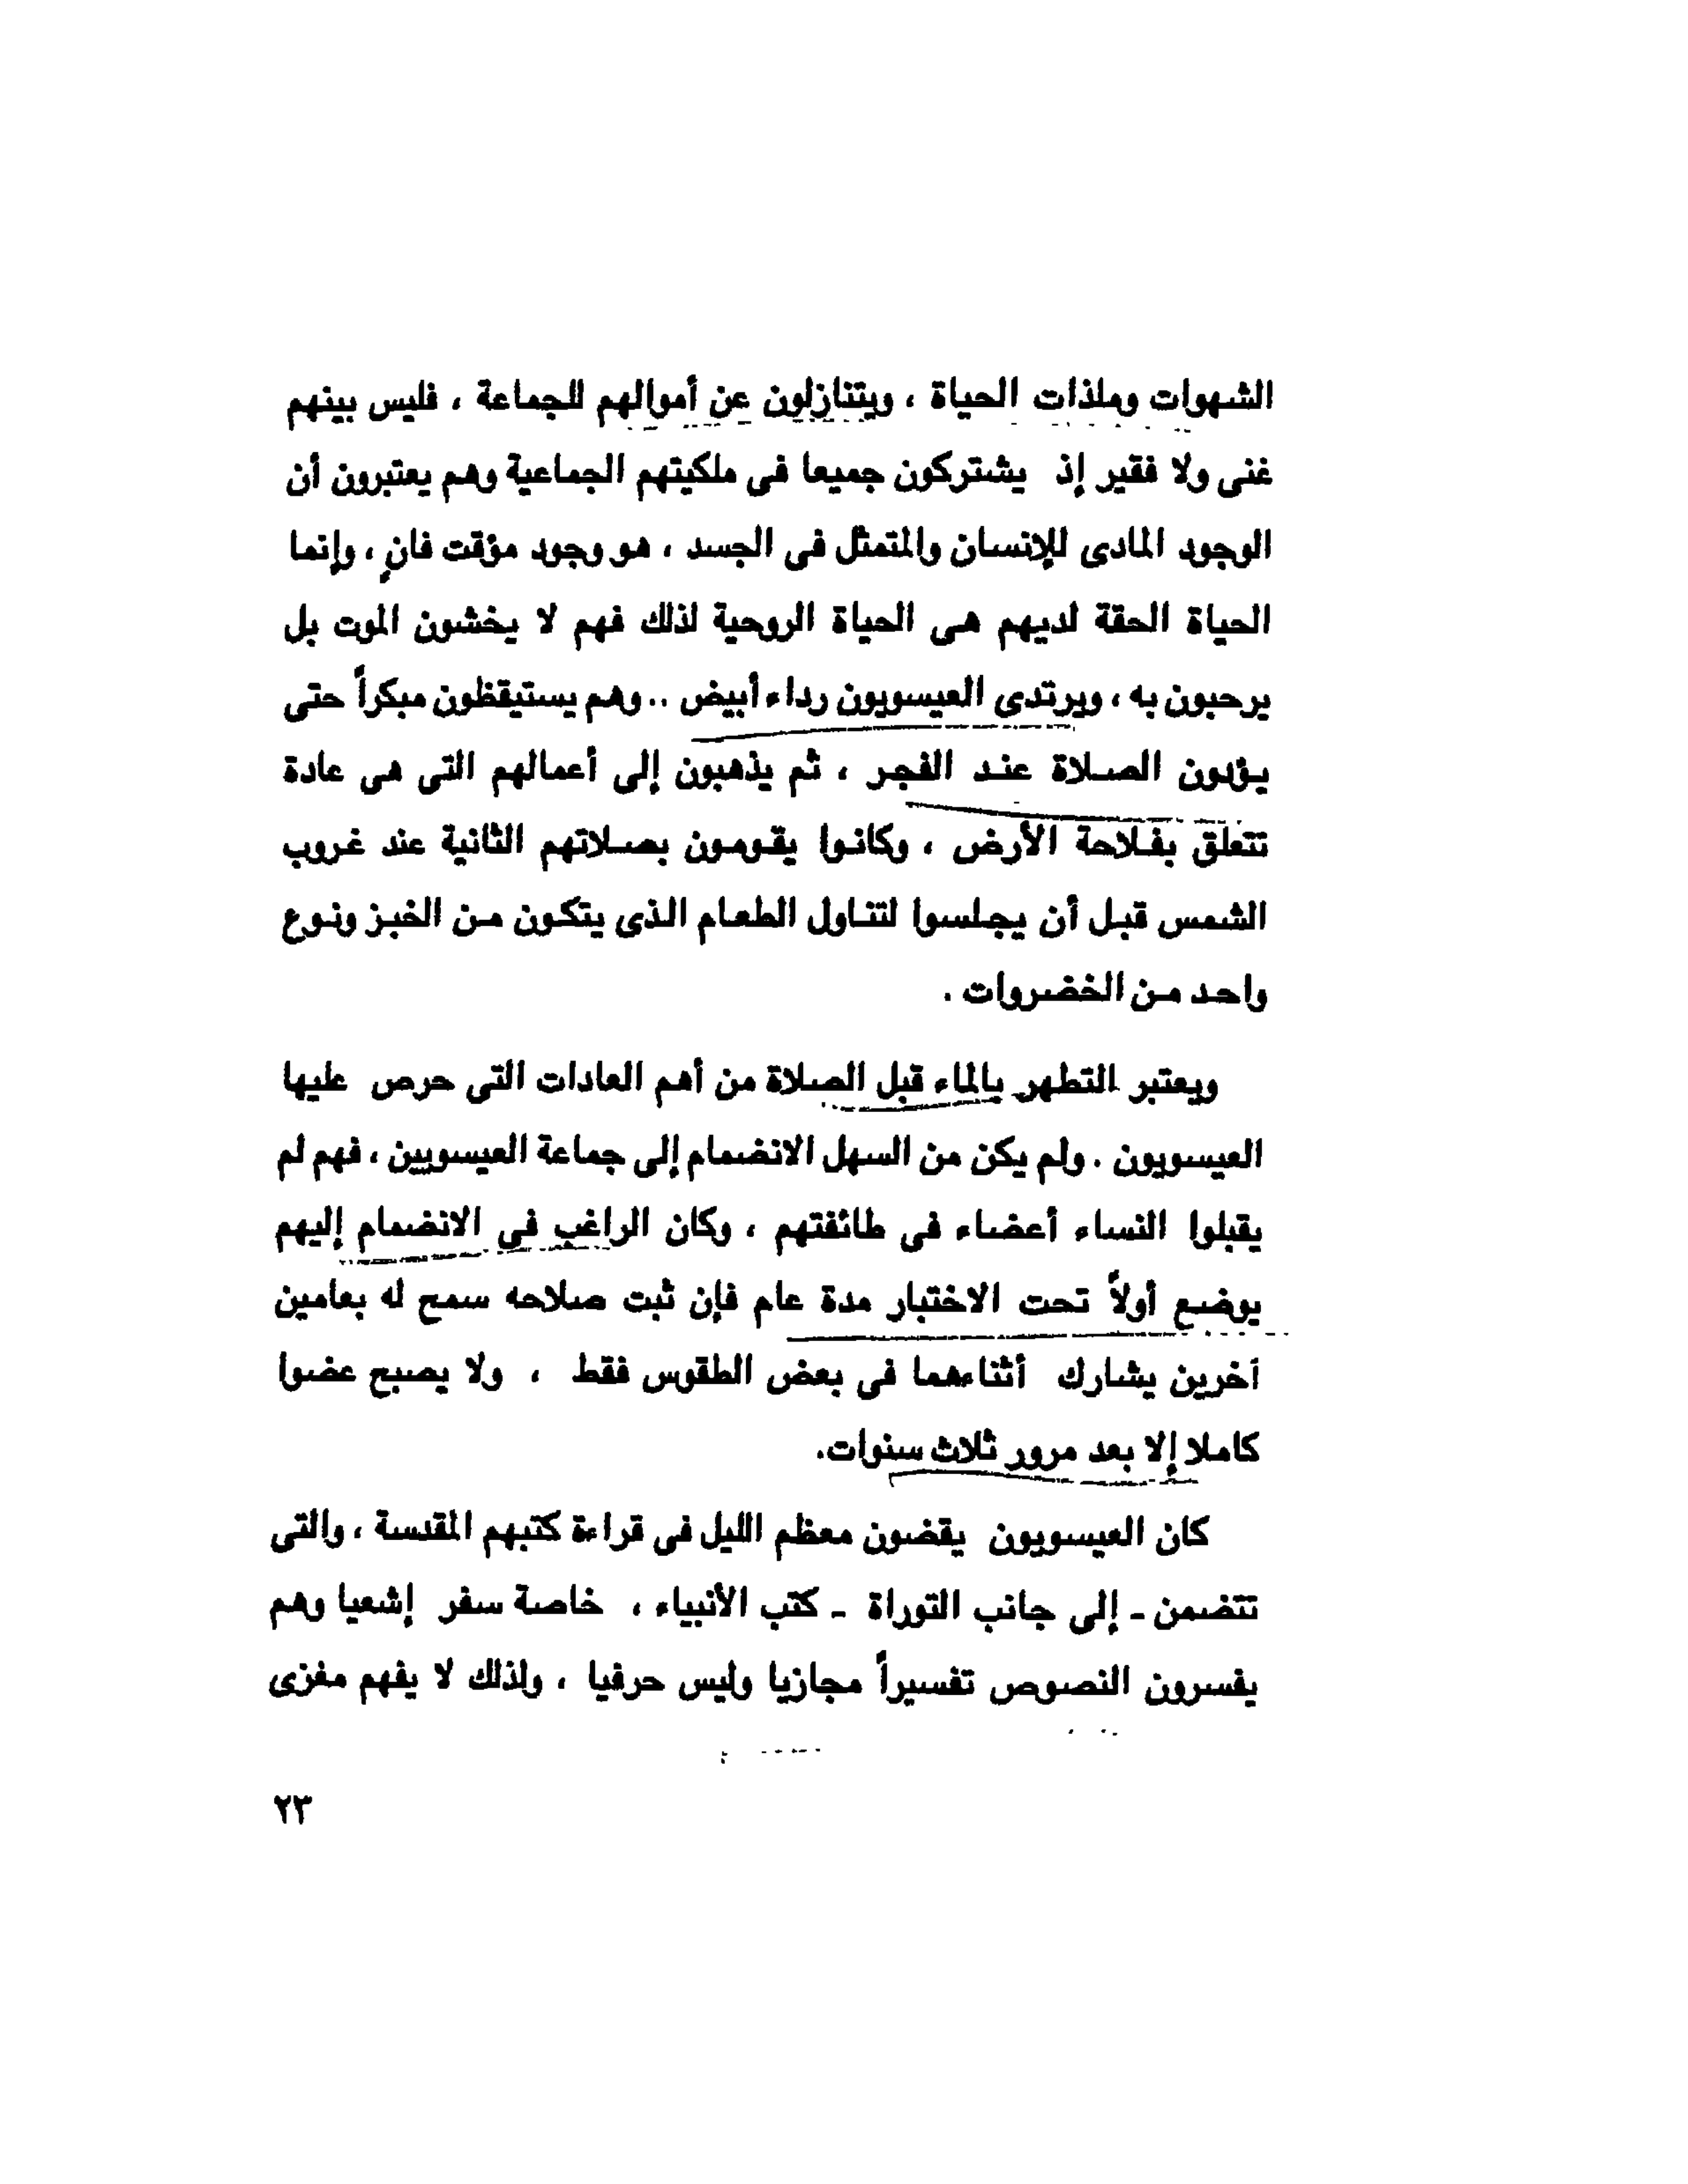 الشهوات وملذات الحياة ، ويتنازلون عن أموالهم للجماعة ، فليس بينهم
غنى ولا فقير إذ يشتركون جميعا فى ملكيتهم الجماعية وهم يعتبرون أن
الوجود المادى للإنسان والمتمثل فى الجسد ، هو وجود مؤقت فانٍ ، وإنما
الحياة الحقة لديهم هى الحياة الروحية لذلك فهم لا يخشون الموت بل
يرحبون به ، ويرتدى العيسويون رداء أبيض .. وهم يستيقظون مبكراً حتى
يؤدون الصلاة عند الفجر ، ثم يذهبون إلى أعمالهم التى هى عادة
تتعلق بفلاحة الأرض ، وكانوا يقومون بصلاتهم الثانية عند غروب
الشمس قبل أن يجلسوا لتناول الطعام الذى يتكون من الخبز ونوع
واحد من الخضروات .
ويعتبر التطهر بالماء قبل الصلاة من أهم العادات التى حرص عليها
العيسويون . ولم يكن من السهل الانضمام إلى جماعة العيسويين ، فهم لم
يقبلوا النساء أعضاء فى طائفتهم ، وكان الراغب فى الانضمام إليهم
يوضع أولاً تحت الاختبار مدة عام فإن ثبت صلاحه سمح له بعامين
آخرين يشارك أثناءهما فى بعض الطقوس فقط ، ولا يصبح عضوا
كاملا إلا بعد مرور ثلاث سنوات.
كان العيسويون يقضون معظم الليل فى قراءة كتبهم المقدسة ، والتى
تتضمن - إلى جانب التوراة - كتب الأنبياء ، خاصة سفر إشعيا وهم
يفسرون النصوص تفسيراً مجازيا وليس حرفيا ، ولذلك لا يفهم مغزى
٢٣